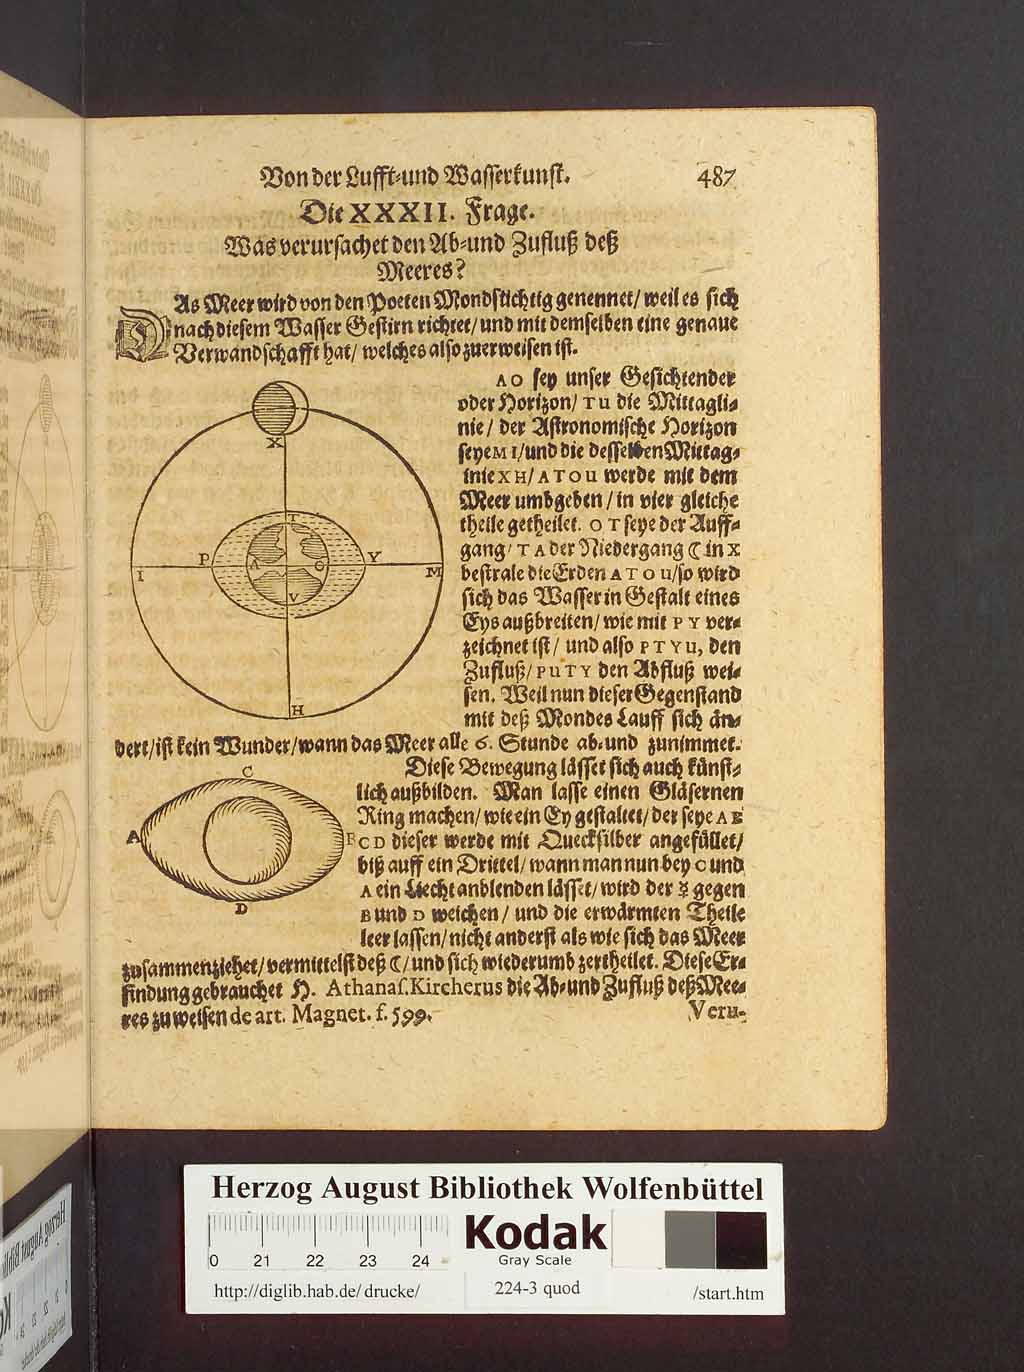 Von der Lufft-und Wasserkunst. 487
Die XXXII. Frage.
Was verursachet den Ab-und Zufluß deß
Meeres?
DAs Meer wird von den Poeten Mondsüchtig genennet/ weil es sich
nach diesem Wasser Gestirn richtet/ und mit demselben eine genaue
Verwandschafft hat/ welches also zuerweisen ist.
AO sey unser Gesichtender
oder Horizon/ TU die Mittagli-
nie/ der Astronomische Horizon
seye MI/ und die desselben Mittag-
linie XH/ ATOU werde mit dem
Meer umbgeben/ in vier gleiche
theile getheilet. OT seye der Auff-
gang/ TA der Niedergang ☾ in X
bestrale die Erden ATOU/ so wird
sich das Wasser in Gestalt eines
Eys außbreiten/ wie mit PY ver-
zeichnet ist/ und also PTYU, den
Zufluß/ PUTY den Abfluß wei-
sen. Weil nun dieser Gegenstand
mit deß Mondes Lauff sich än-
dert/ ist kein Wunder/ wann das Meer alle 6. Stunde ab-und zunimmet.
X
T
P
A
O
Y
I
M
V
H
Diese Bewegung lässet sich auch künst-
lich außbilden. Man lasse einen Gläsernen
Ring machen/ wie ein Ey gestaltet/ der seye AB
CD dieser werde mit Quecksilber angefüllet/
biß auff ein Drittel/ wann man nun bey C und
A ein Liecht anblenden lässet/ wird der ☿ gegen
B und D weichen/ und die erwärmten Theile
leer lassen/ nicht anderst als wie sich das Meer
zusammenziehet/ vermittelst deß ☾/ und sich wiederumb zertheilet. Diese Er-
findung gebrauchet H. Athanas. Kircherus die Ab-und Zufluß deß Mee-
res zu weisen de art. Magnet. f. 599.
Veru-
C
A
B
D
Herzog August Bibliothek Wolfenbüttel
0 21 22 23 24
Kodak
Gray Scale
http://diglib.hab.de/ drucke/ 224-3 quod /start.htm